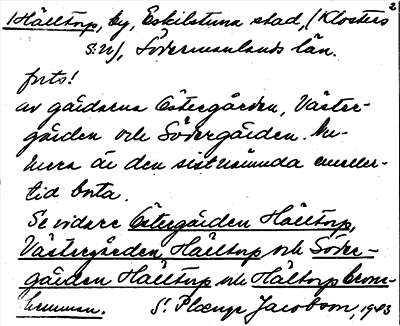 2
Hälltorp, by, Eskilstuna stad, (Klosters
s:n), Södermanlands län.
forts!
av gårdarna Östergården, Väster-
gården och Södergården. Nu-
mera är den sistnämnda emeller-
tid borta.
Se vidare Östergården Hälltorp,
Västergården Hälltorp och Söder-
gården Hälltorp och Hälltorp krono-
hemman. S. Jacobson, 1943